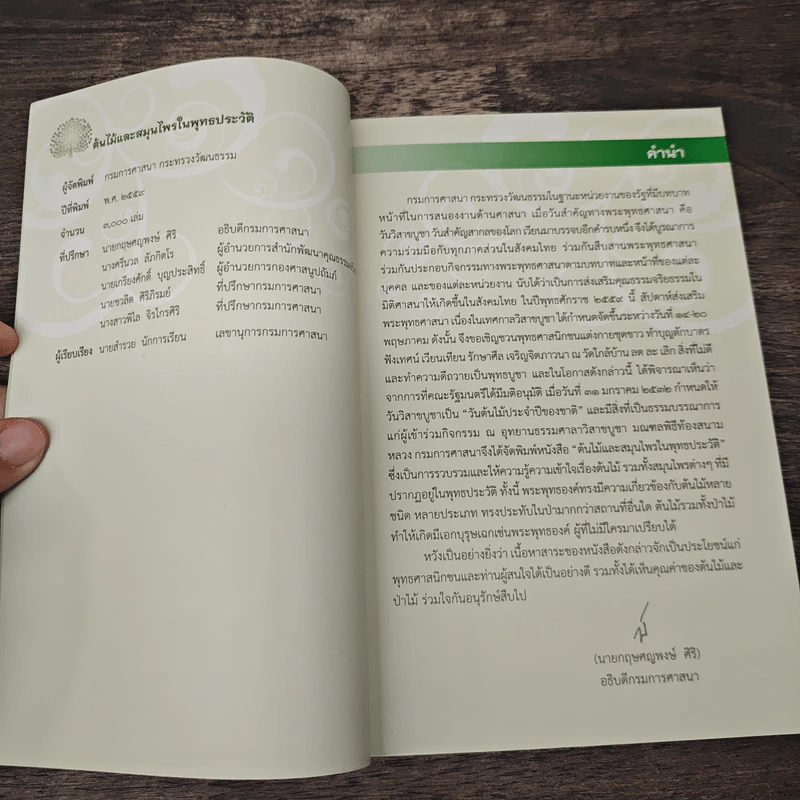 ต้นไม้และสมุนไพรในพุทธประวัติ
ผู้จัดพิมพ์ กรมการศาสนา กระทรวงวัฒนธรรม
ปีที่พิมพ์ พ.ศ. ๒๕๕๙
จำนวน ๓,๐๐๐ เล่ม
ที่ปรึกษา นายกฤษศญพงษ์ ศิริ อธิบดีกรมการศาสนา
นางศรีนวล ลัภกิตโร ผู้อำนวยการสำนักพัฒนาคุณธรรม
นายเกรียงศักดิ์ บุญประสิทธิ์ ผู้อำนวยการกองศาสนูปถัมภ์
นายชวลิต ศิริภิรมย์ ที่ปรึกษากรมการศาสนา
นางสาวพิไล จิรไกรศิริ ที่ปรึกษากรมการศาสนา
ผู้เรียบเรียง นายสำรวย นักการเรียน เลขานุการกรมการศาสนา
คำนำ
กรมการศาสนา กระทรวงวัฒนธรรมในฐานะหน่วยงานของรัฐที่มีบทบาท
หน้าที่ในการสนองงานด้านศาสนา เมื่อวันสำคัญทางพระพุทธศาสนา คือ
วันวิสาขบูชา วันสำคัญสากลของโลก เวียนมาบรรจบอีกคำรบหนึ่ง จึงได้บูรณาการ
ความร่วมมือกับทุกภาคส่วนในสังคมไทย ร่วมกันสืบสานพระพุทธศาสนา
ร่วมกันประกอบกิจกรรมทางพระพุทธศาสนาตามบทบาทและหน้าที่ของแต่ละ
บุคคล และของแต่ละหน่วยงาน นับได้ว่าเป็นการส่งเสริมคุณธรรมจริยธรรมใน
มิติศาสนาให้เกิดขึ้นในสังคมไทย ในปีพุทธศักราช ๒๕๕๙ นี้ สัปดาห์ส่งเสริม
พระพุทธศาสนา เนื่องในเทศกาลวิสาขบูชา ได้กำหนดจัดขึ้นระหว่างวันที่ ๑๔-๒๐
พฤษภาคม ดังนั้น จึงขอเชิญชวนพุทธศาสนิกชนแต่งกายชุดขาว ทำบุญตักบาตร
ฟังเทศน์ เวียนเทียน รักษาศีล เจริญจิตภาวนา ณ วัดใกล้บ้าน ลด ละ เลิก สิ่งที่ไม่ดี
และทำความดีถวายเป็นพุทธบูชา และในโอกาสดังกล่าวนี้ ได้พิจารณาเห็นว่า
จากการที่คณะรัฐมนตรีได้มีมติอนุมัติ เมื่อวันที่ ๓๑ มกราคม ๒๕๓๒ กำหนดให้
วันวิสาขบูชาเป็น “วันต้นไม้ประจำปีของชาติ” และมีสิ่งที่เป็นธรรมบรรณาการ
แก่ผู้เข้าร่วมกิจกรรม ณ อุทยานธรรมศาลาวิสาขบูชา มณฑลพิธีท้องสนาม
หลวง กรมการศาสนาจึงได้จัดพิมพ์หนังสือ “ต้นไม้และสมุนไพรในพุทธประวัติ”
ซึ่งเป็นการรวบรวมและให้ความรู้ความเข้าใจเรื่องต้นไม้ รวมทั้งสมุนไพรต่างๆ ที่มี
ปรากฏอยู่ในพุทธประวัติ ทั้งนี้ พระพุทธองค์ทรงมีความเกี่ยวข้องกับต้นไม้หลาย
ชนิด หลายประเภท ทรงประทับในป่ามากกว่าสถานที่อื่นใด ต้นไม้รวมทั้งป่าไม้
ทำให้เกิดมีเอกบุรุษเฉกเช่นพระพุทธองค์ ผู้ที่ไม่มีใครมาเปรียบได้
หวังเป็นอย่างยิ่งว่า เนื้อหาสาระของหนังสือดังกล่าวจักเป็นประโยชน์แก่
พุทธศาสนิกชนและท่านผู้สนใจได้เป็นอย่างดี รวมทั้งได้เห็นคุณค่าของต้นไม้และ
ป่าไม้ ร่วมใจกันอนุรักษ์สืบไป
(นายกฤษศญพงษ์ ศิริ)
อธิบดีกรมการศาสนา